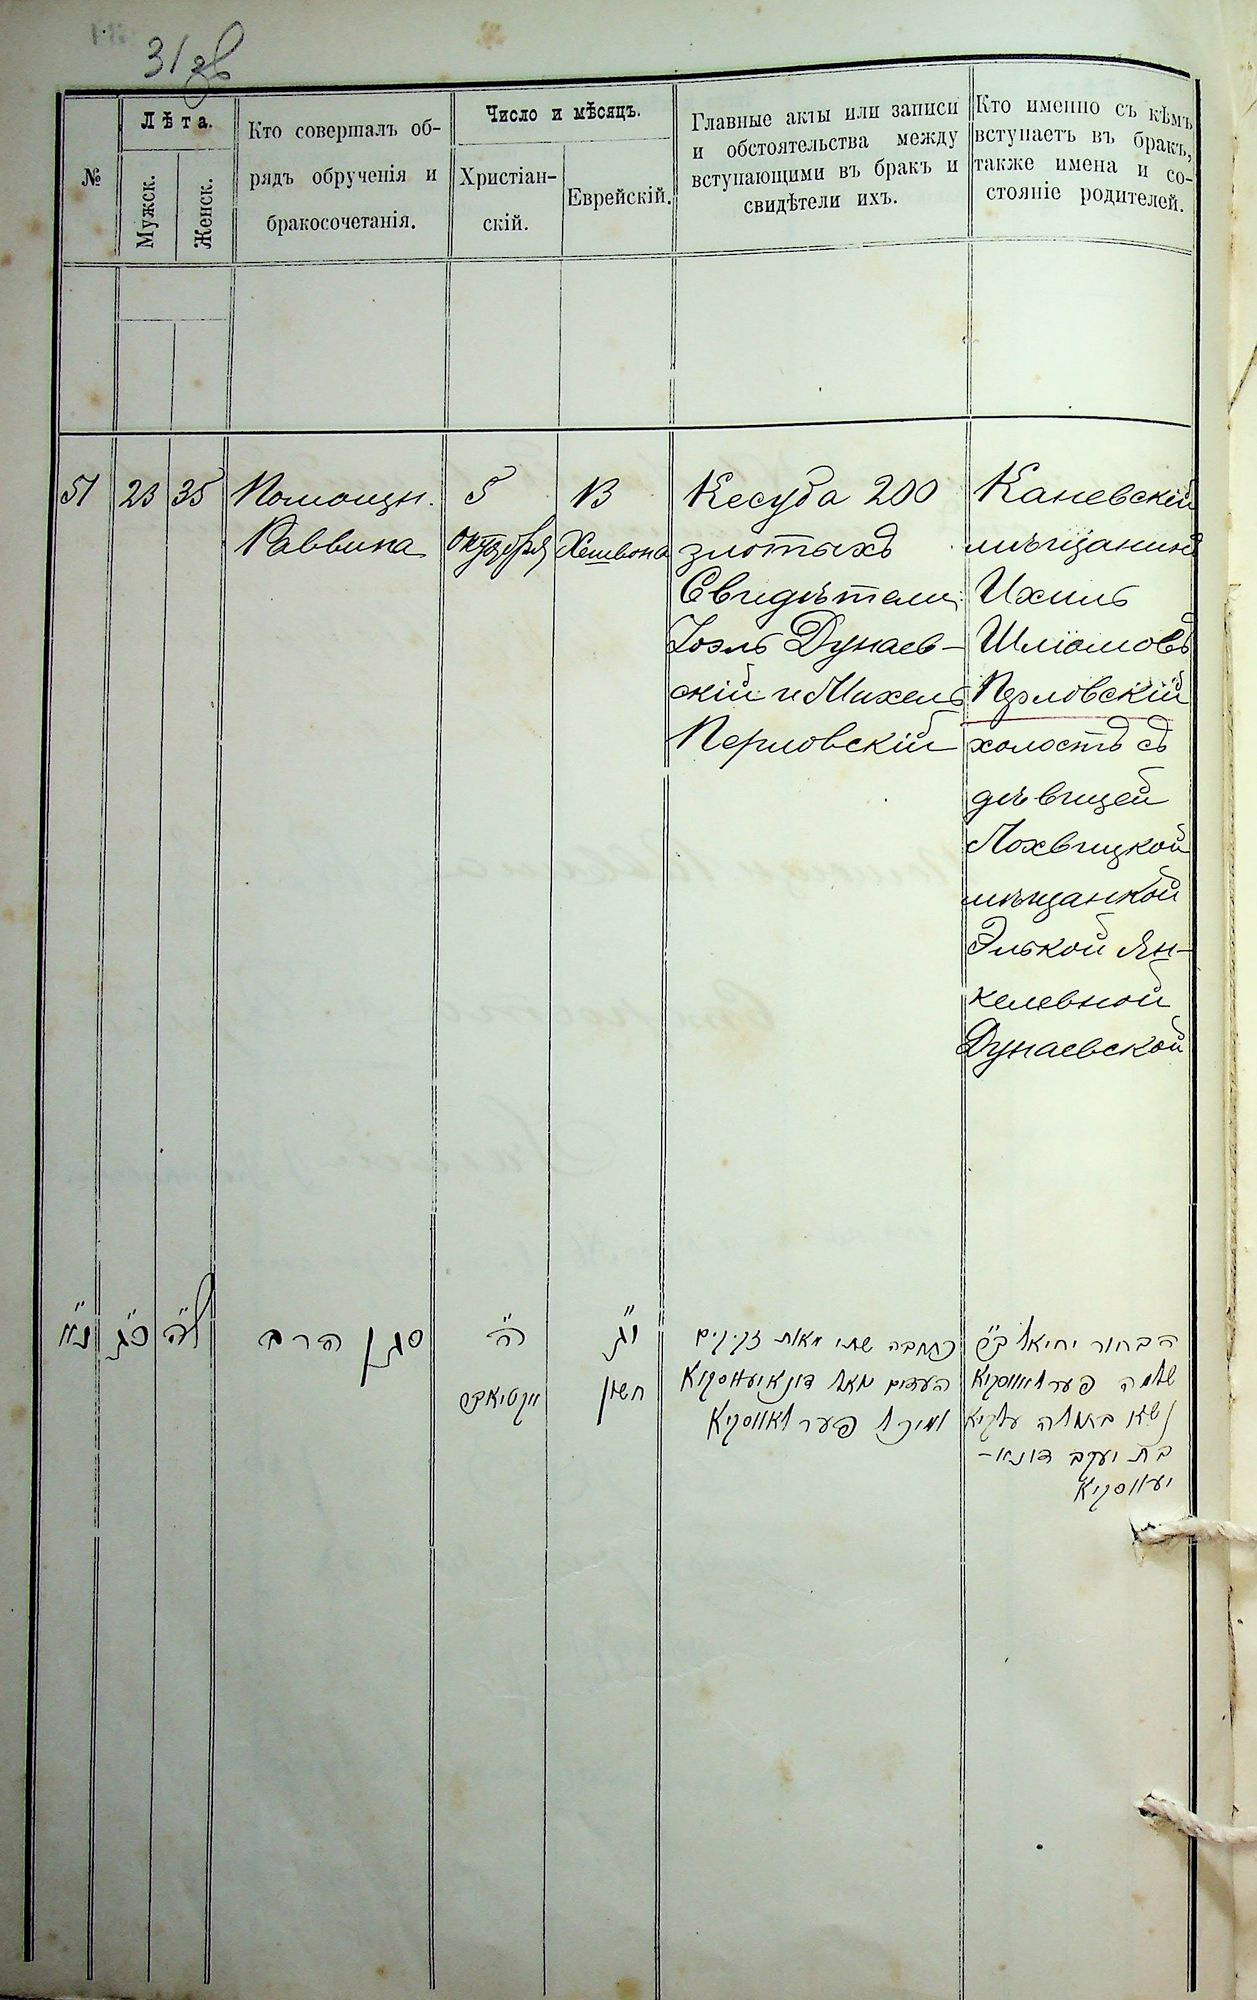 31 об
№
Лѣта.
Мужск.
Женск.
Кто совершалъ об-
рядъ обрученія и
бракосочетанія.
Число и мѣсяцъ.
Христіан-
скій.
Еврейскій.
Главные акты или записи
и обстоятельства между
вступающими въ бракъ и
свидѣтели ихъ.
Кто именно съ кѣмъ
вступаетъ въ бракъ,
также имена и со-
стояніе родителей.
51
23
35
Помощн.
Раввина
5
октября
13
Хешвона
Кесуба 200
злотыхъ
Свидѣтели:
Іоэль Дунаев-
скій и Михель
Перловскій
Каневскій
мѣщанинъ
Ихиль
Шліомовъ
Перловскій
холостъ съ
дѣвицей
Лохвицкой
мѣщанкой
Элькой Ян-
келевной
Дунаевской
נ״א
כ״ג
ל״ה
סגן הרב
ה״
אקטיאבר
י״ג
חשון
כתובה שתי מאות זקוקים
העדים יואל דונאיעווסקיא
ומיכל פערלאווסקיא
הבחור יחיאל ב״ר
שלמה פערלאווסקיא
נשא בתולה עלקיא
בת יעקב דונא-
יעווסקיא